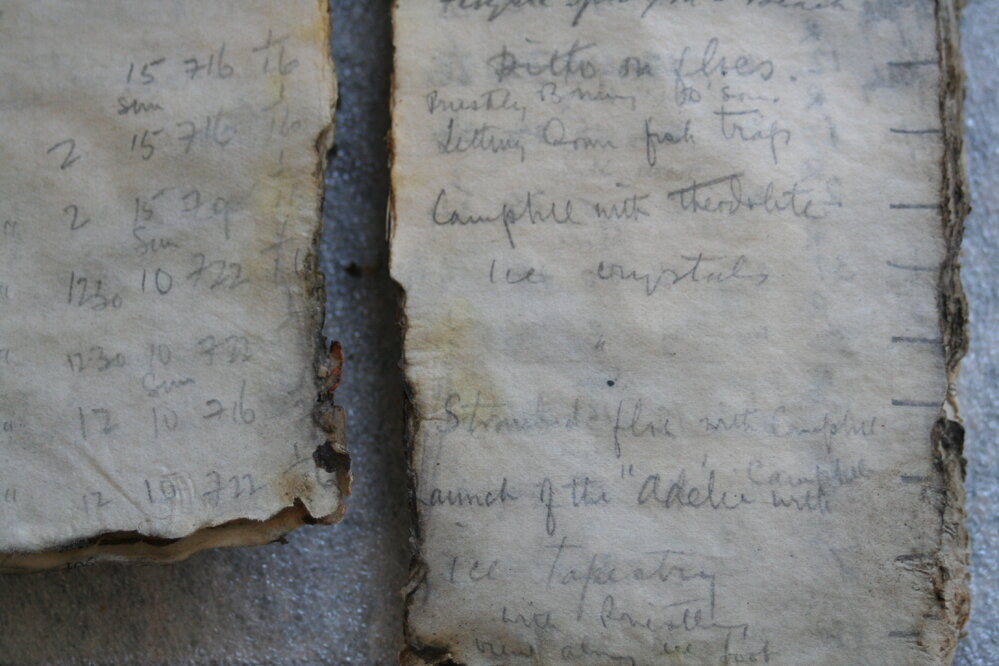 15 716 16
Sun
2 15 716 16
" 2 15
Sun
" 1230 10 722
" 1230 10 722
Sun
" 12 10 716
" 12 10 722
Ditto on floes.
Priestly
Setting Down fish traps
Camphell with theodolite
Ice crystals
"
Stranded floe with Camphell.
Launch of the "Adelie with Camphell
Ice Tapestry
with Priestley
view along ice foot